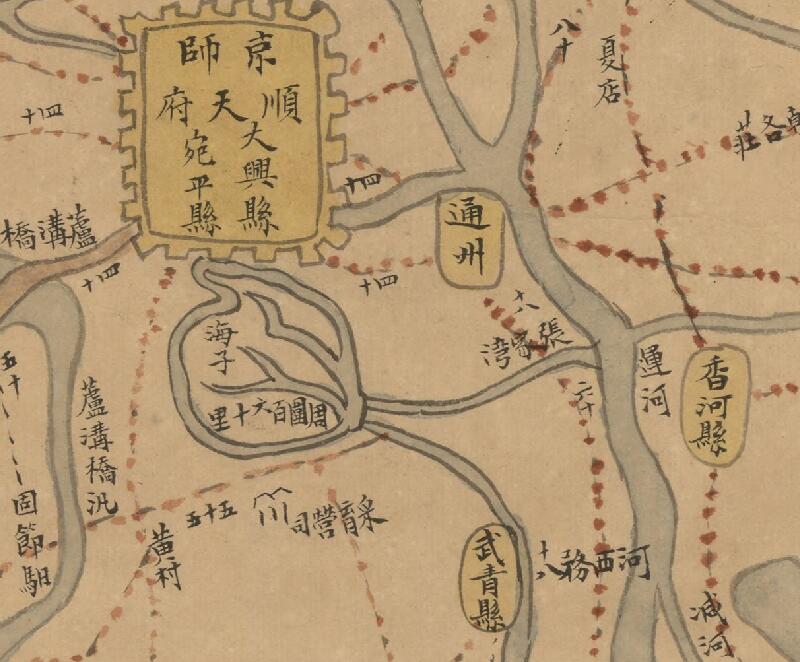 京師
順天府
大興縣
宛平縣
八十
夏店
四十
蘆溝橋
四十
四十
四十
通州
海子
周圍百六十里
十八
張家湾
六十
運河
香河縣
五十
蘆溝橋汛
固節馹
五十五
采育營司
黃村
武青縣
十八
河西務
减河